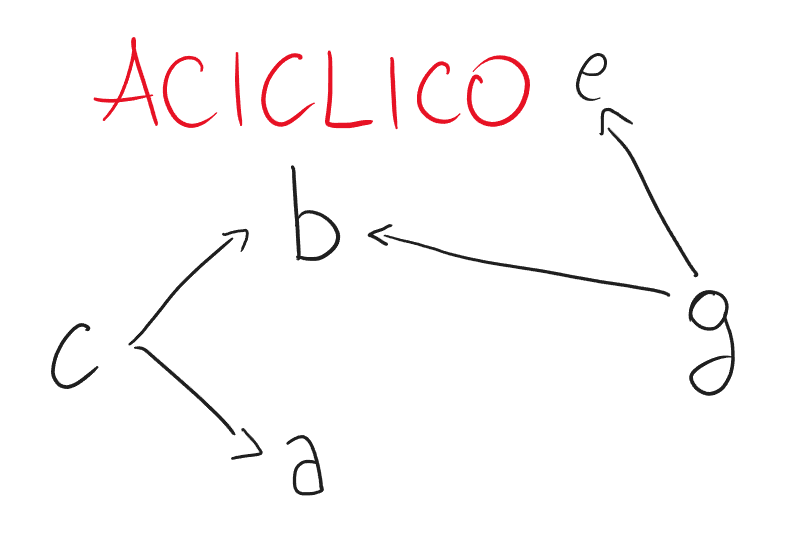 ACICLICO e
b
g
c
a